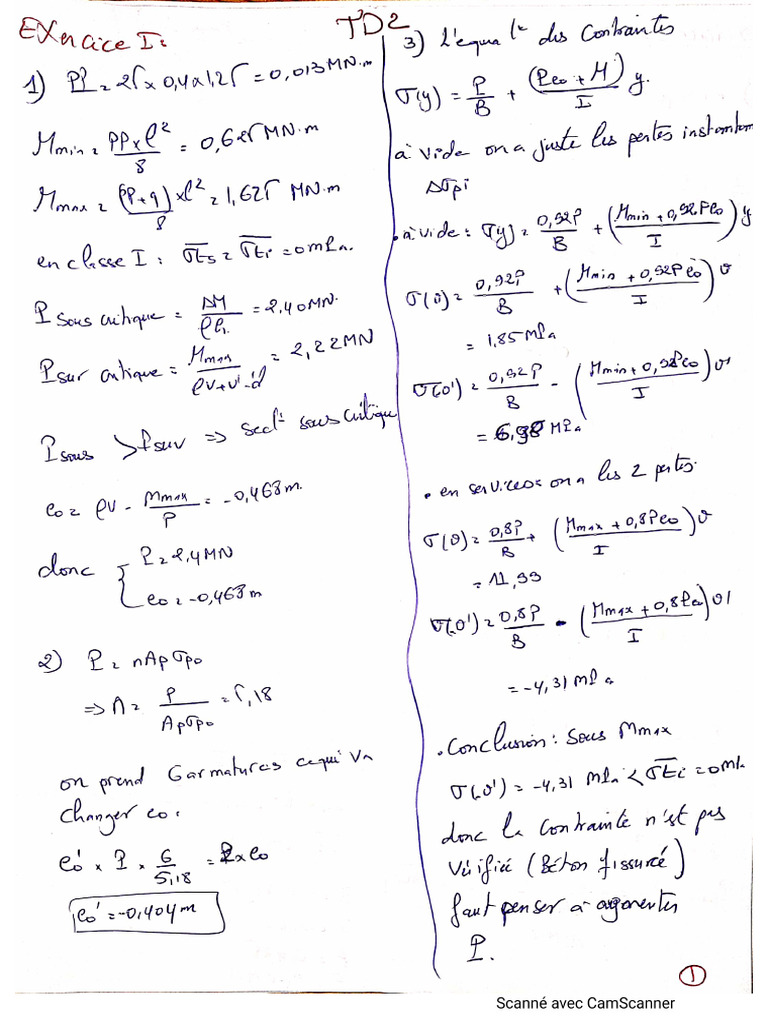 TD2
Exercice I:
1) PP = 25 x 0,4 x 1,25 = 0,013 MN.m
Mmin = PP x l² / 8 = 0,625 MN.m
Mmax = (PP+q) / 8 x l² = 1,625 MN.m
en classe I : σts = σti = 0 mPa.
P sous critique = ΔM / ρh = 2,40 MN.
P sur critique = Mmax / ρv+v'-d = 2,22 MN
P sous > Psur => Sect° sous critique
eo = ρv - Mmax / P = -0,463 m.
donc { P = 2,4 MN
eo = -0,463 m
2) P = nAp σpo
=> n = P / Apσpo = 5,18
on prend 6 armatures ce qui va
changer eo.
eo' x P x 6 / 5,18 = P x eo
eo' = -0,404 m
3) L'équat° des Contraintes
σ(y) = P / B + (Peo + M / I) y.
à vide on a juste les pertes instantan
Δσpi
• à vide : σ(y) = 0,92P / B + (Mmin + 0,92Peo / I) y
σ(v) = 0,92P / B + (Mmin + 0,92Peo / I) v
= 1,85 mPa
σ(v') = 0,92P / B - (Mmin + 0,92Peo / I) v'
= 6,98 MPa
• en service : on a les 2 pertes.
σ(v) = 0,8P / B + (Mmax + 0,8Peo / I) v
= 11,99
σ(v') = 0,8P / B - (Mmax + 0,8Peo / I) v'
= -4,31 mPa
• Conclusion : sous Mmax
σ(v') = -4,31 mPa < σti = 0 mPa
donc la contrainte n'est pas
vérifié (Béton fissuré)
faut penser à augmenter
P.
1
Scanné avec CamScanner